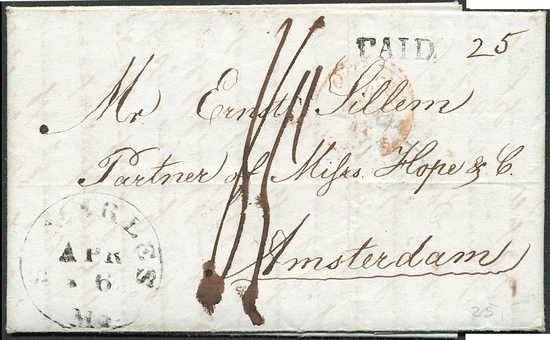 PAID. 25
Mr Ernst Sillem
Partner of Messrs. Hope & C.
Amsterdam
ST CHARLES
APR
6
Mo.
25